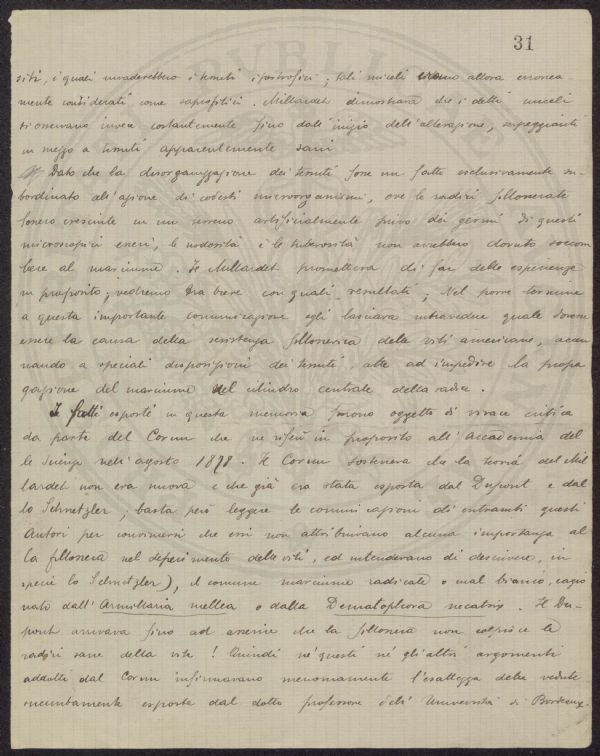 31
sità, i quali invaderebbero i tessuti ipertrofici; tali miceli allora erronea-
mente considerati come saprofitici. Millardet dimostrava che i detti miceli
si osservano invece costantemente fino dall'inizio dell'alterazione, serpeggianti
in mezzo a tessuti apparentemente sani.
Dato che la disorganizzazione dei tessuti fosse un fatto esclusivamente su-
bordinato all'azione di codesti microorganismi, ove le radici fillosserate
fossero cresciute in un terreno artificialmente privo dei germi di questi
microscopici esseri, le nodosità e le tuberosità non avrebbero dovuto soccom-
bere al marciume. Il Millardet prometteva di far delle esperienze
in proposito; vedremo fra breve con quali resultati; Nel porre termine
a questa importante comunicazione egli lasciava intravedere quale dovesse
essere la causa della resistenza fillosserica delle viti americane, accen
nando a speciali disposizioni dei tessuti, atte ad impedire la propa
gazione del marciume nel cilindro centrale della radice.
I fatti esposti in questa memoria furono oggetto di vivace critica
da parte del Cornu che ne riferì in proposito all'Accademia del
le Scienze nell'agosto 1878. Il Cornu sosteneva che la teoria del Mil
lardet non era nuova e che già era stata esposta dal Dupont e dal
lo Schnetzler; basta però leggere le comunicazioni di entrambi questi
Autori per convincersi che essi non attribuivano alcuna importanza al
la fillossera nel deperimento delle viti, ed intendevano di descrivere, in
specie lo Schnetzler), il comune marciume radicale o mal bianco, cagio
nato dall'Armillaria mellea o dalla Dematophora necatrix. Il Du-
pont arrivava fino ad asserire che la fillossera non colpisce le
radici sane della vite! Quindi nè questi nè gli altri argomenti
addotti dal Cornu infirmavano menomamente l'esattezza delle vedute
recentemente esposte dal dotto professore dell'Università di Bordeaux.